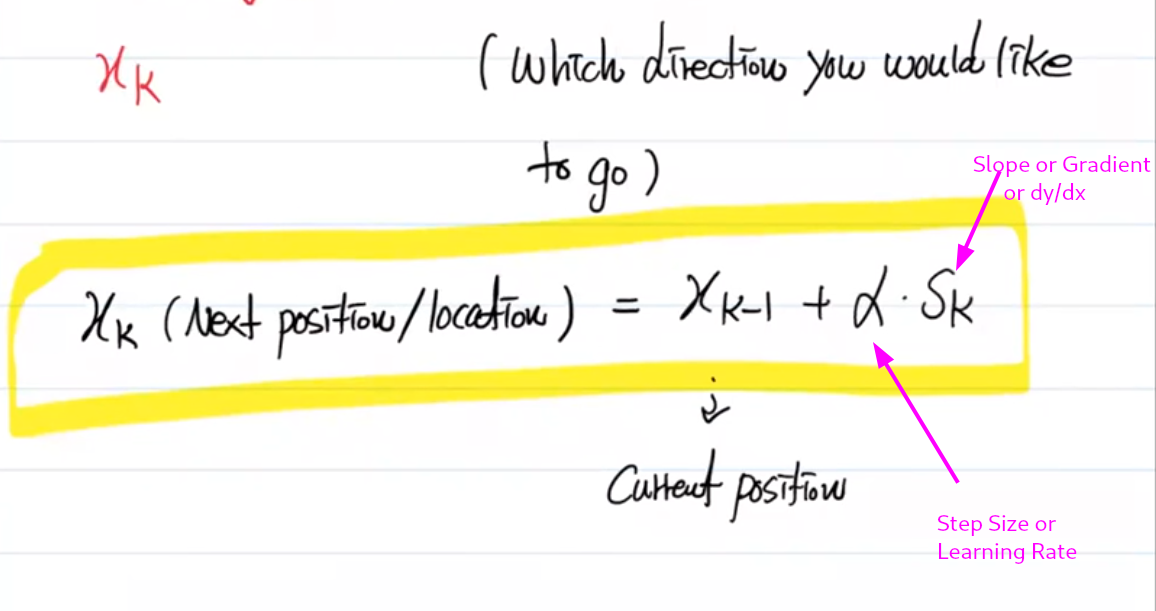 x_k (Which direction you would like
to go)
Slope or Gradient
or dy/dx
x_k (Next position/location) = x_{k-1} + α · S_k
Current position
Step Size or
Learning Rate